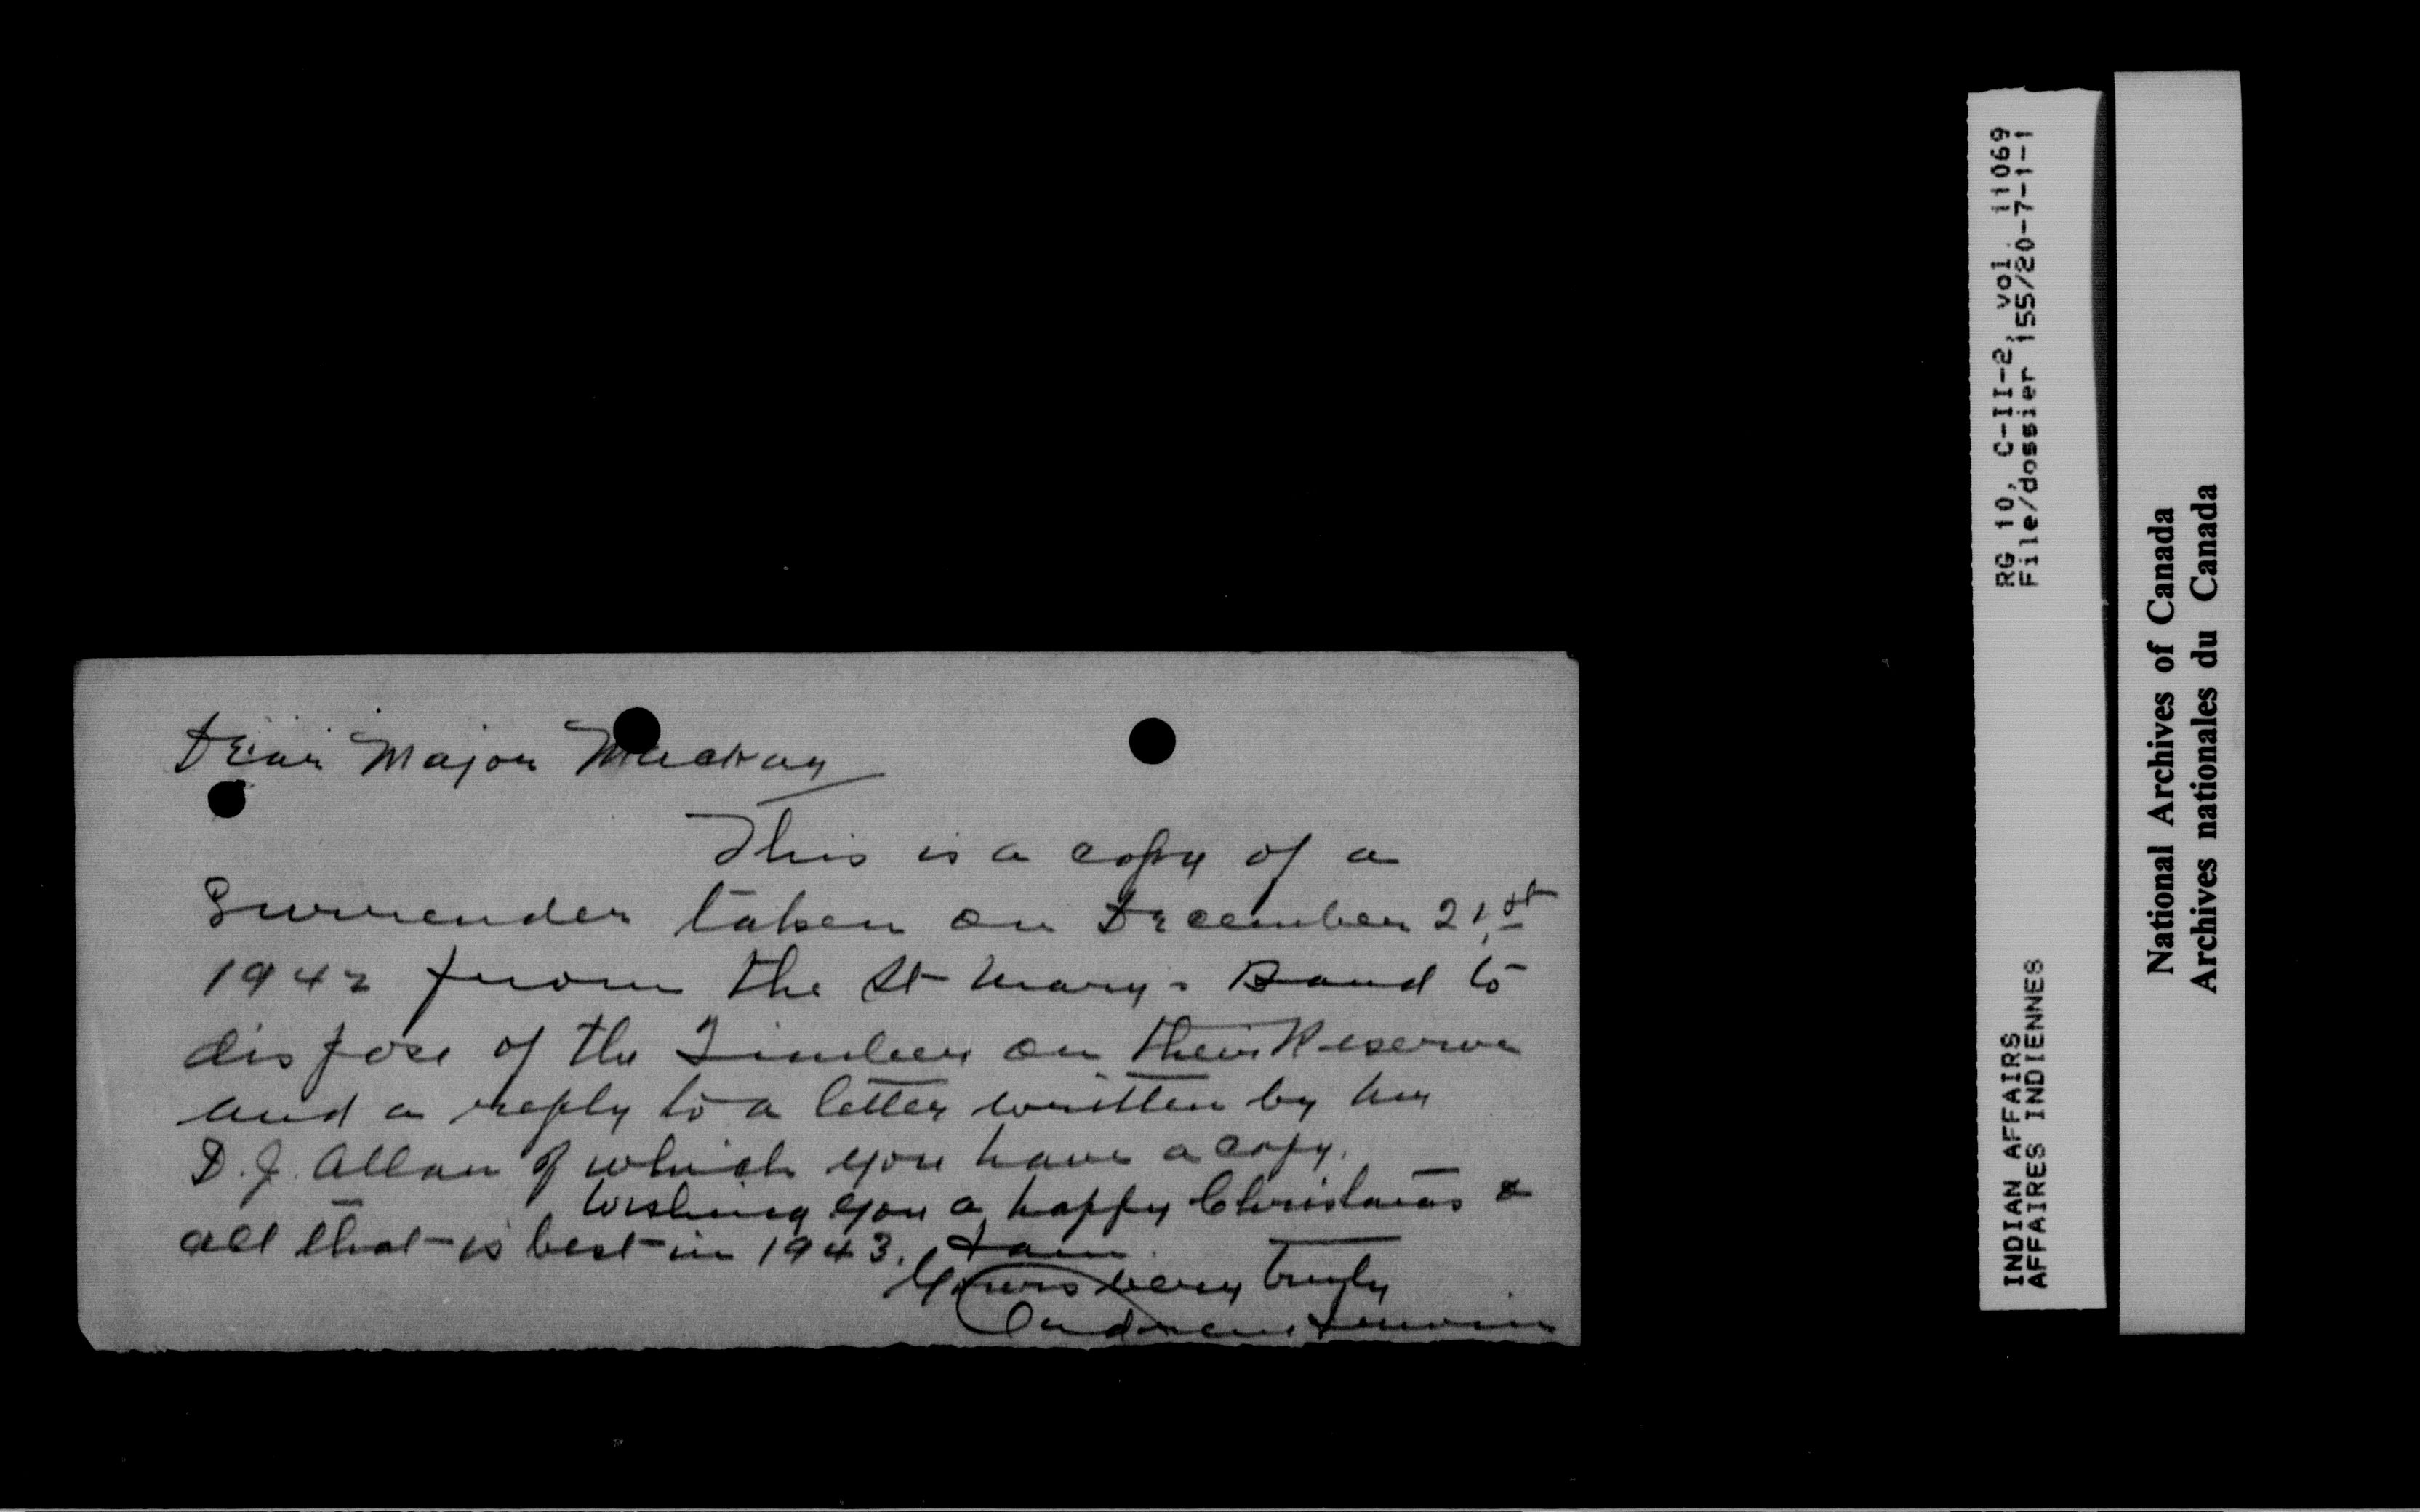 Dear Major Mackay
This is a copy of a
Surrender taken on December 21st
1942 from the St Mary's Band to
dispose of the Timber on their Reserve
and a reply to a letter written by
D.J. Allan of which you have a copy.
Wishing you a happy Christmas &
all that is best in 1943. I am
Yours very truly
RG 10, C-II-2, vol. 11069
File/dossier 155/20-7-1-1
INDIAN AFFAIRS
AFFAIRES INDIENNES
National Archives of Canada
Archives nationales du Canada